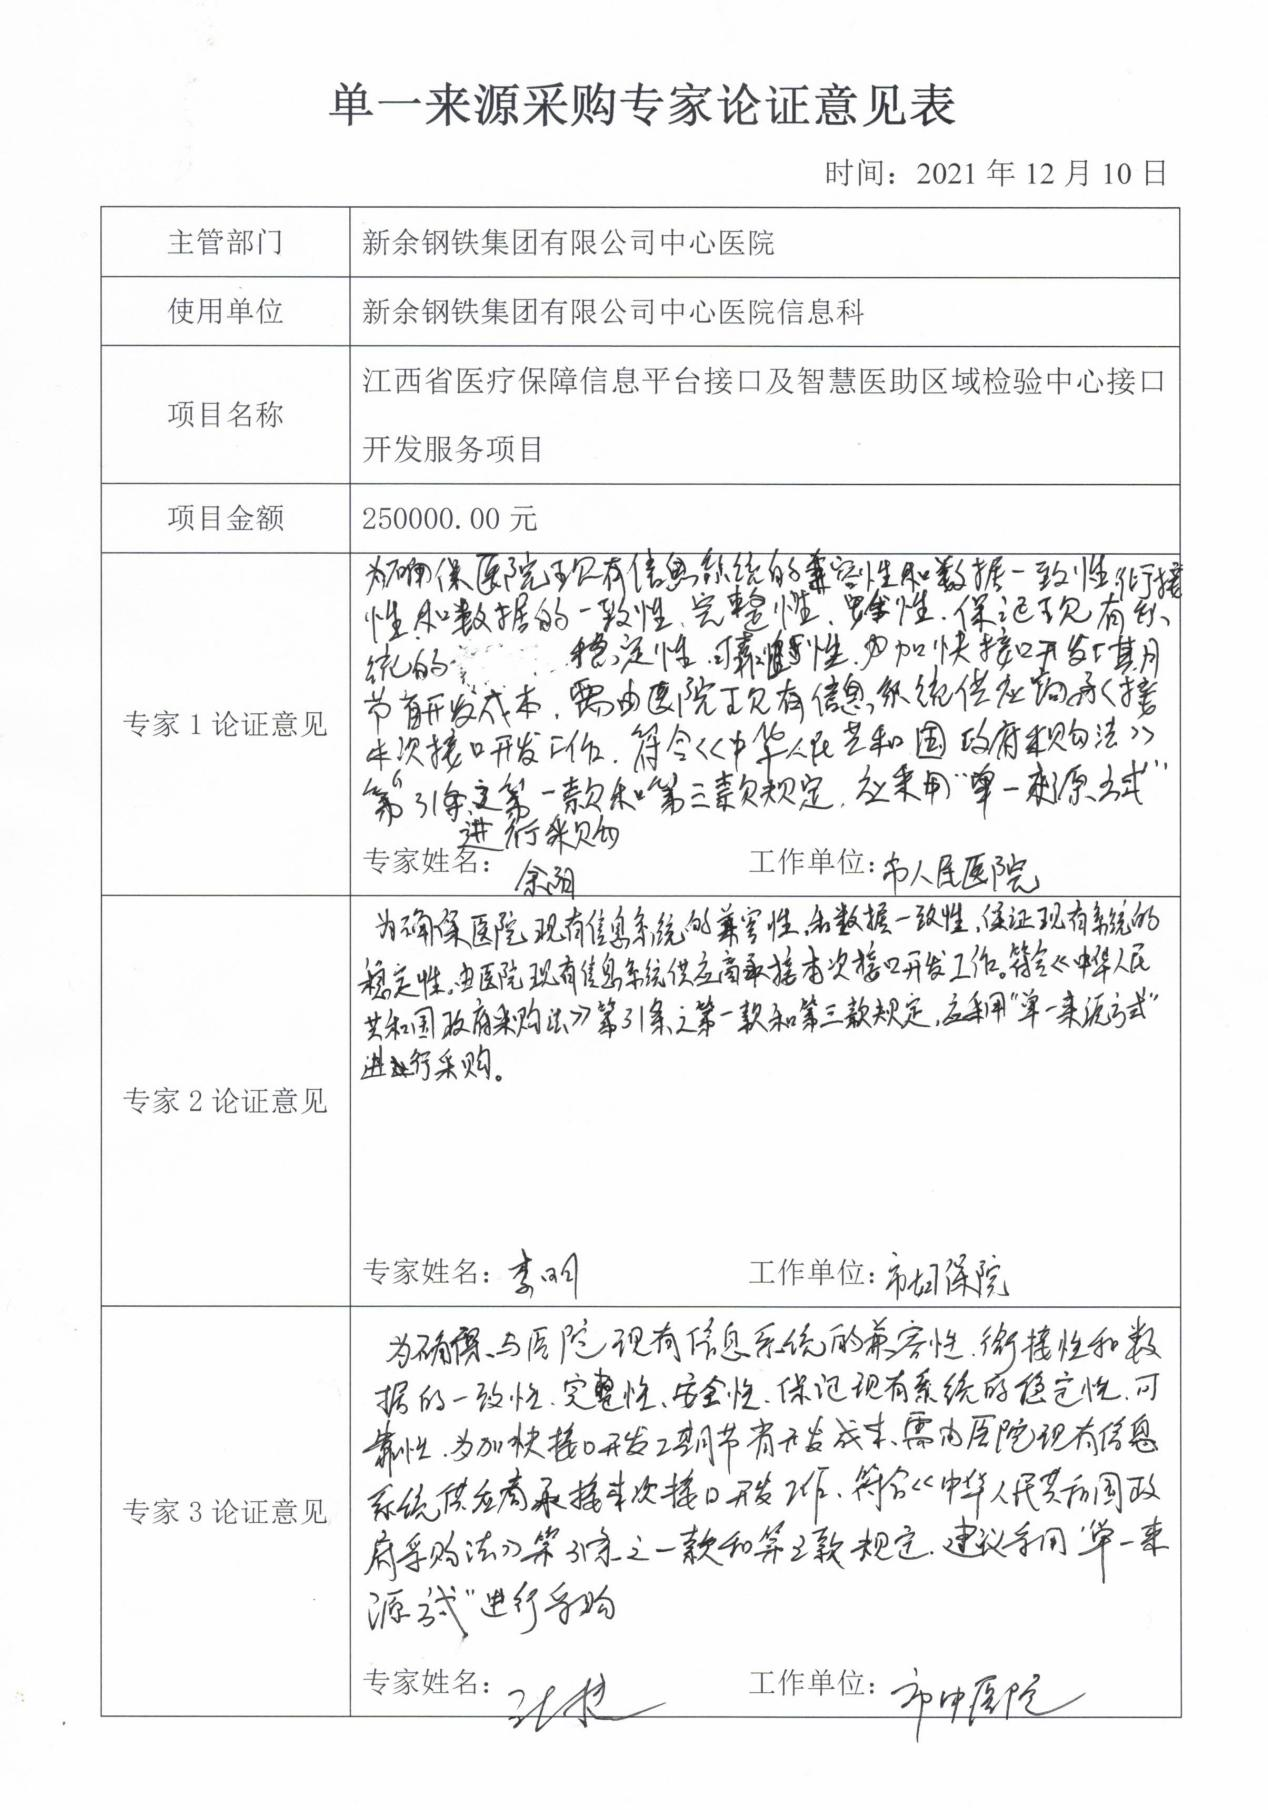 单一来源采购专家论证意见表
时间：2021 年 12 月 10 日
主管部门
新余钢铁集团有限公司中心医院
使用单位
新余钢铁集团有限公司中心医院信息科
项目名称
江西省医疗保障信息平台接口及智慧医助区域检验中心接口
开发服务项目
项目金额
250000.00 元
专家 1 论证意见
为确保医院现有信息系统的兼容性和数据一致性衔接
性和数据的一致性、完整性、安全性、保证现有系
统的 稳定性、可靠性、为加快接口开发工期
节省开发成本，需由医院现有信息系统供应商承接
本次接口开发工作．符合《中华人民共和国政府采购法》
第31条之第一款和第三款规定，应采用“单一来源方式”
进行采购
专家姓名： 工作单位：市人民医院
专家 2 论证意见
为确保医院现有信息系统的兼容性和数据一致性，保证现有系统的
稳定性，由医院现有信息系统供应商承接本次接口开发工作。符合《中华人民
共和国政府采购法》第31条之第一款和第三款规定，应采用“单一来源方式”
进行采购。
专家姓名：李明 工作单位：市妇保院
专家 3 论证意见
为确保与医院现有信息系统的兼容性、衔接性和数
据的一致性、完整性、安全性、保证现有系统的稳定性、可
靠性、为加快接口开发工期节省开发成本、需由医院现有信息
系统供应商承接本次接口开发工作、符合《中华人民共和国政
府采购法》第31条之一款和第三款规定．建议采用“单一来
源方式”进行采购
专家姓名： 工作单位：市中医院